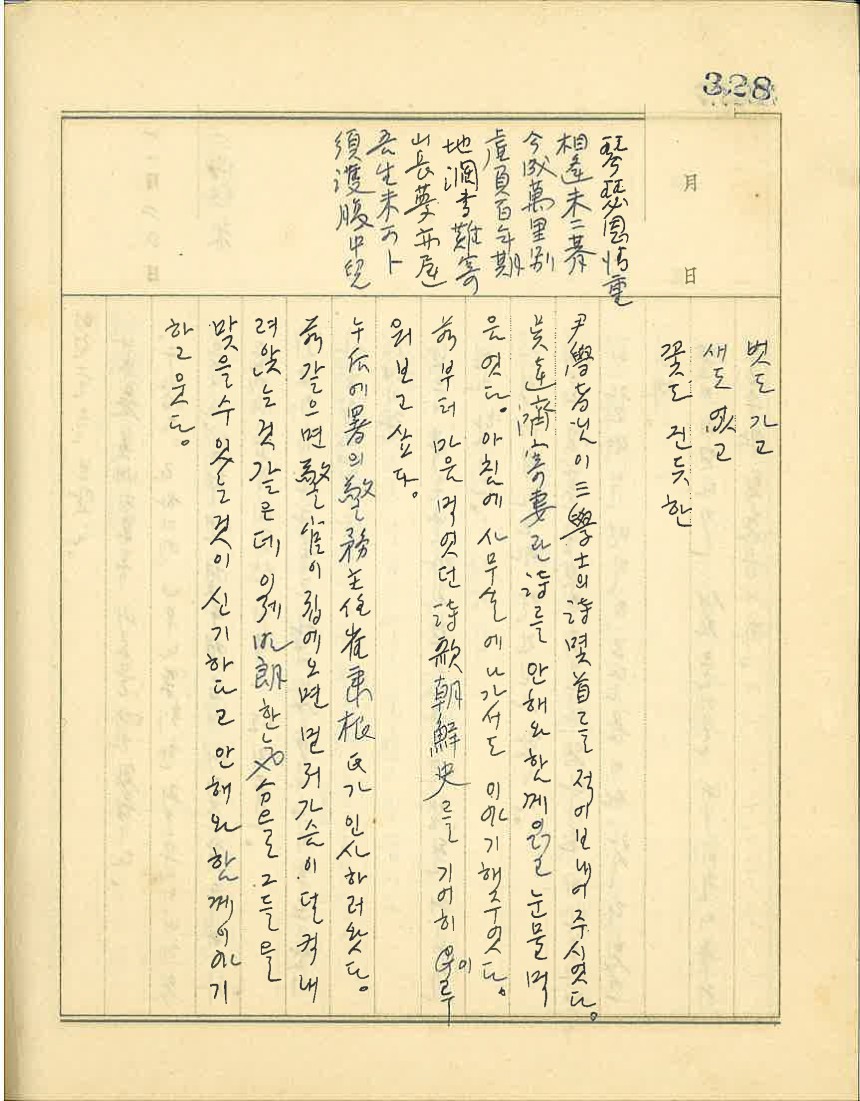 328
月
日
琴瑟恩情重
相逢未二朞
今成萬里別
虛負百年期
地濶書難寄
山長夢亦遲
吾生未可卜
須護腹中兒
벗도 가고
새도 없고
꽃도 진듯한
尹學者님이 三學士의 詩몇首를 적어보내어 주시엿다.
吳達濟 寄妻란 詩를 안해와 함께 읽고 눈물먹
은엿다. 아침에 사무실에 나가서도 이야기해주엇다.
前부터 마음먹엇던 詩歌朝鮮史를 기어히 이루
워보고 싶다.
午后에 署의 警務主任 崔東根氏가 인사하러 왓다.
前 같으면 警官이 집에 오면 먼저 가슴이 덜컥 내
려앉는것 같은데 이제 明朗한 氣分으로 그들을
맞을수 있는것이 신기하다고 안해와 함께 이야기
하고 웃다.